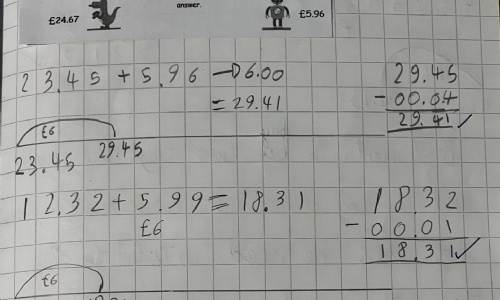 £24.67 answer. £5.96
23.45 + 5.96 → 6.00
= 29.41
29.45
- 00.04
29.41 ✓
£6
23.45 29.45
12.32 + 5.99 = 18.31
£6
18.32
- 00.01
18.31 ✓
£6